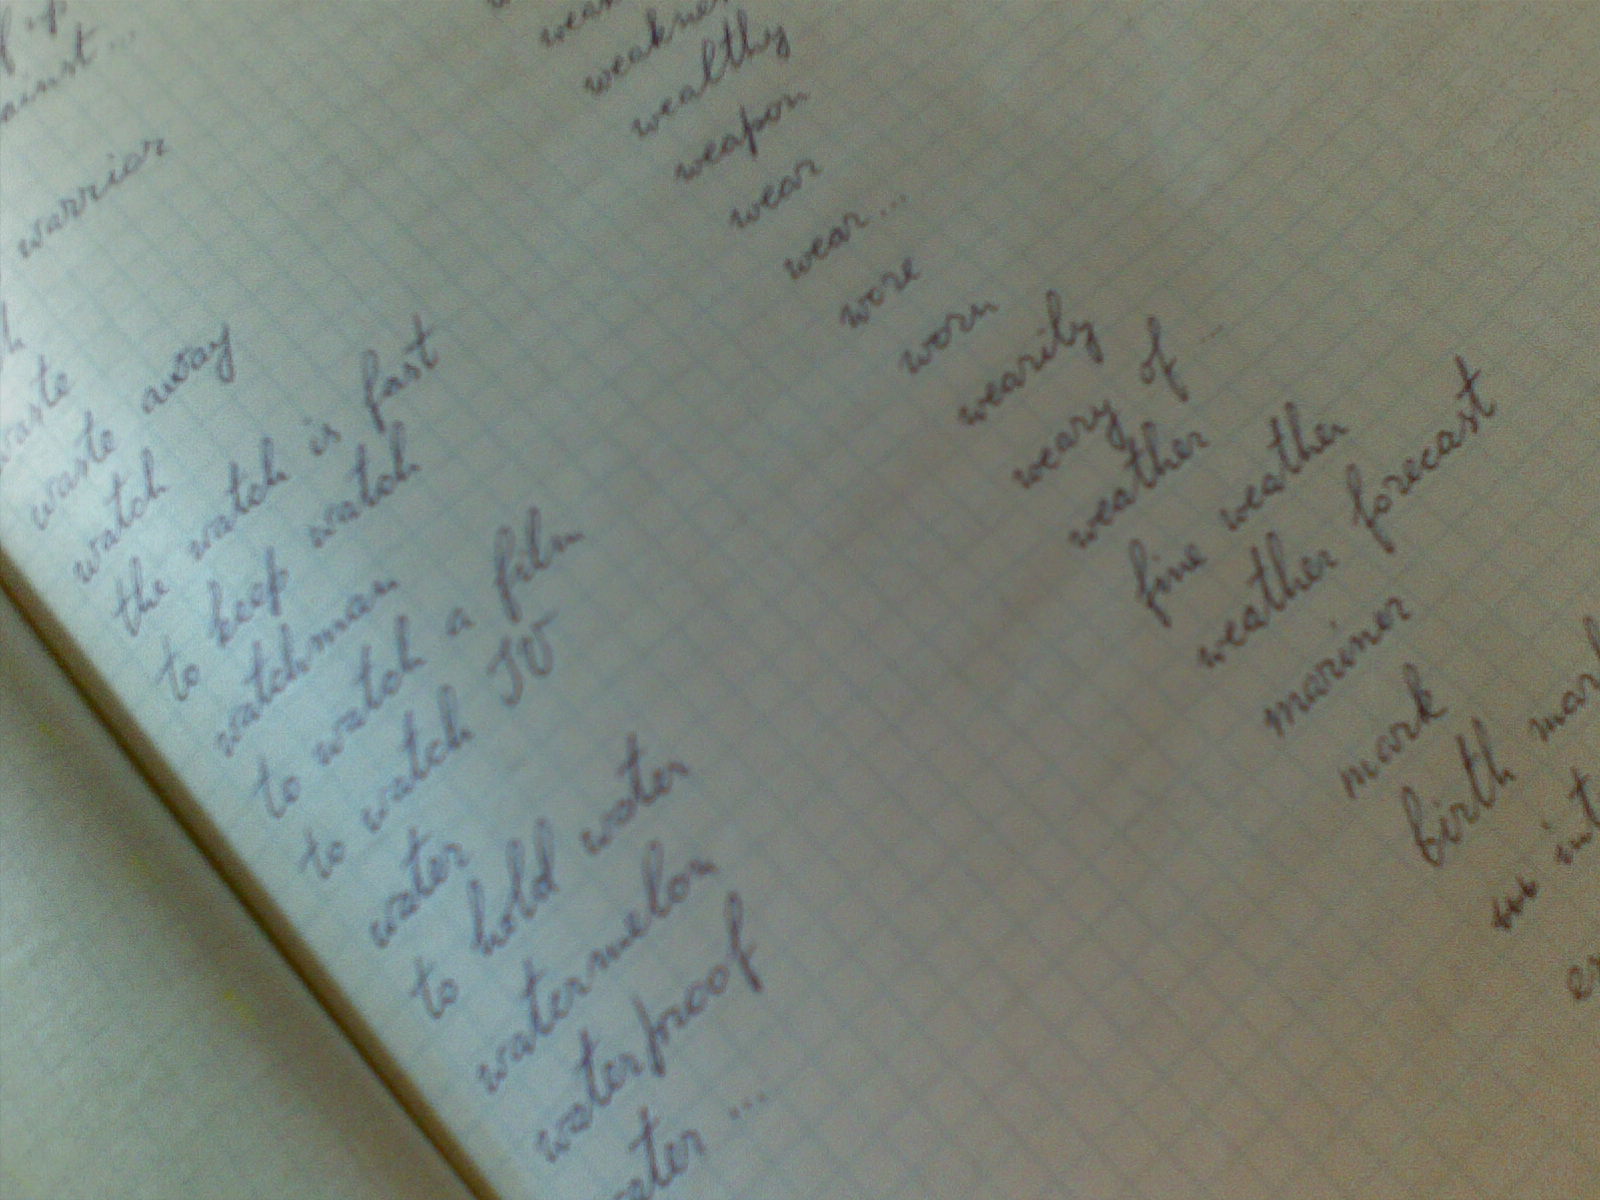 warrior
waste
waste away
watch
the watch is fast
to keep watch
watchman
to watch a film
to watch TV
water
to hold water
watermelon
waterproof
wealthy
weapon
wear
wear...
wore
worn
wearily
weary of ...
weather
fine weather
weather forecast
mariner
mark
birth